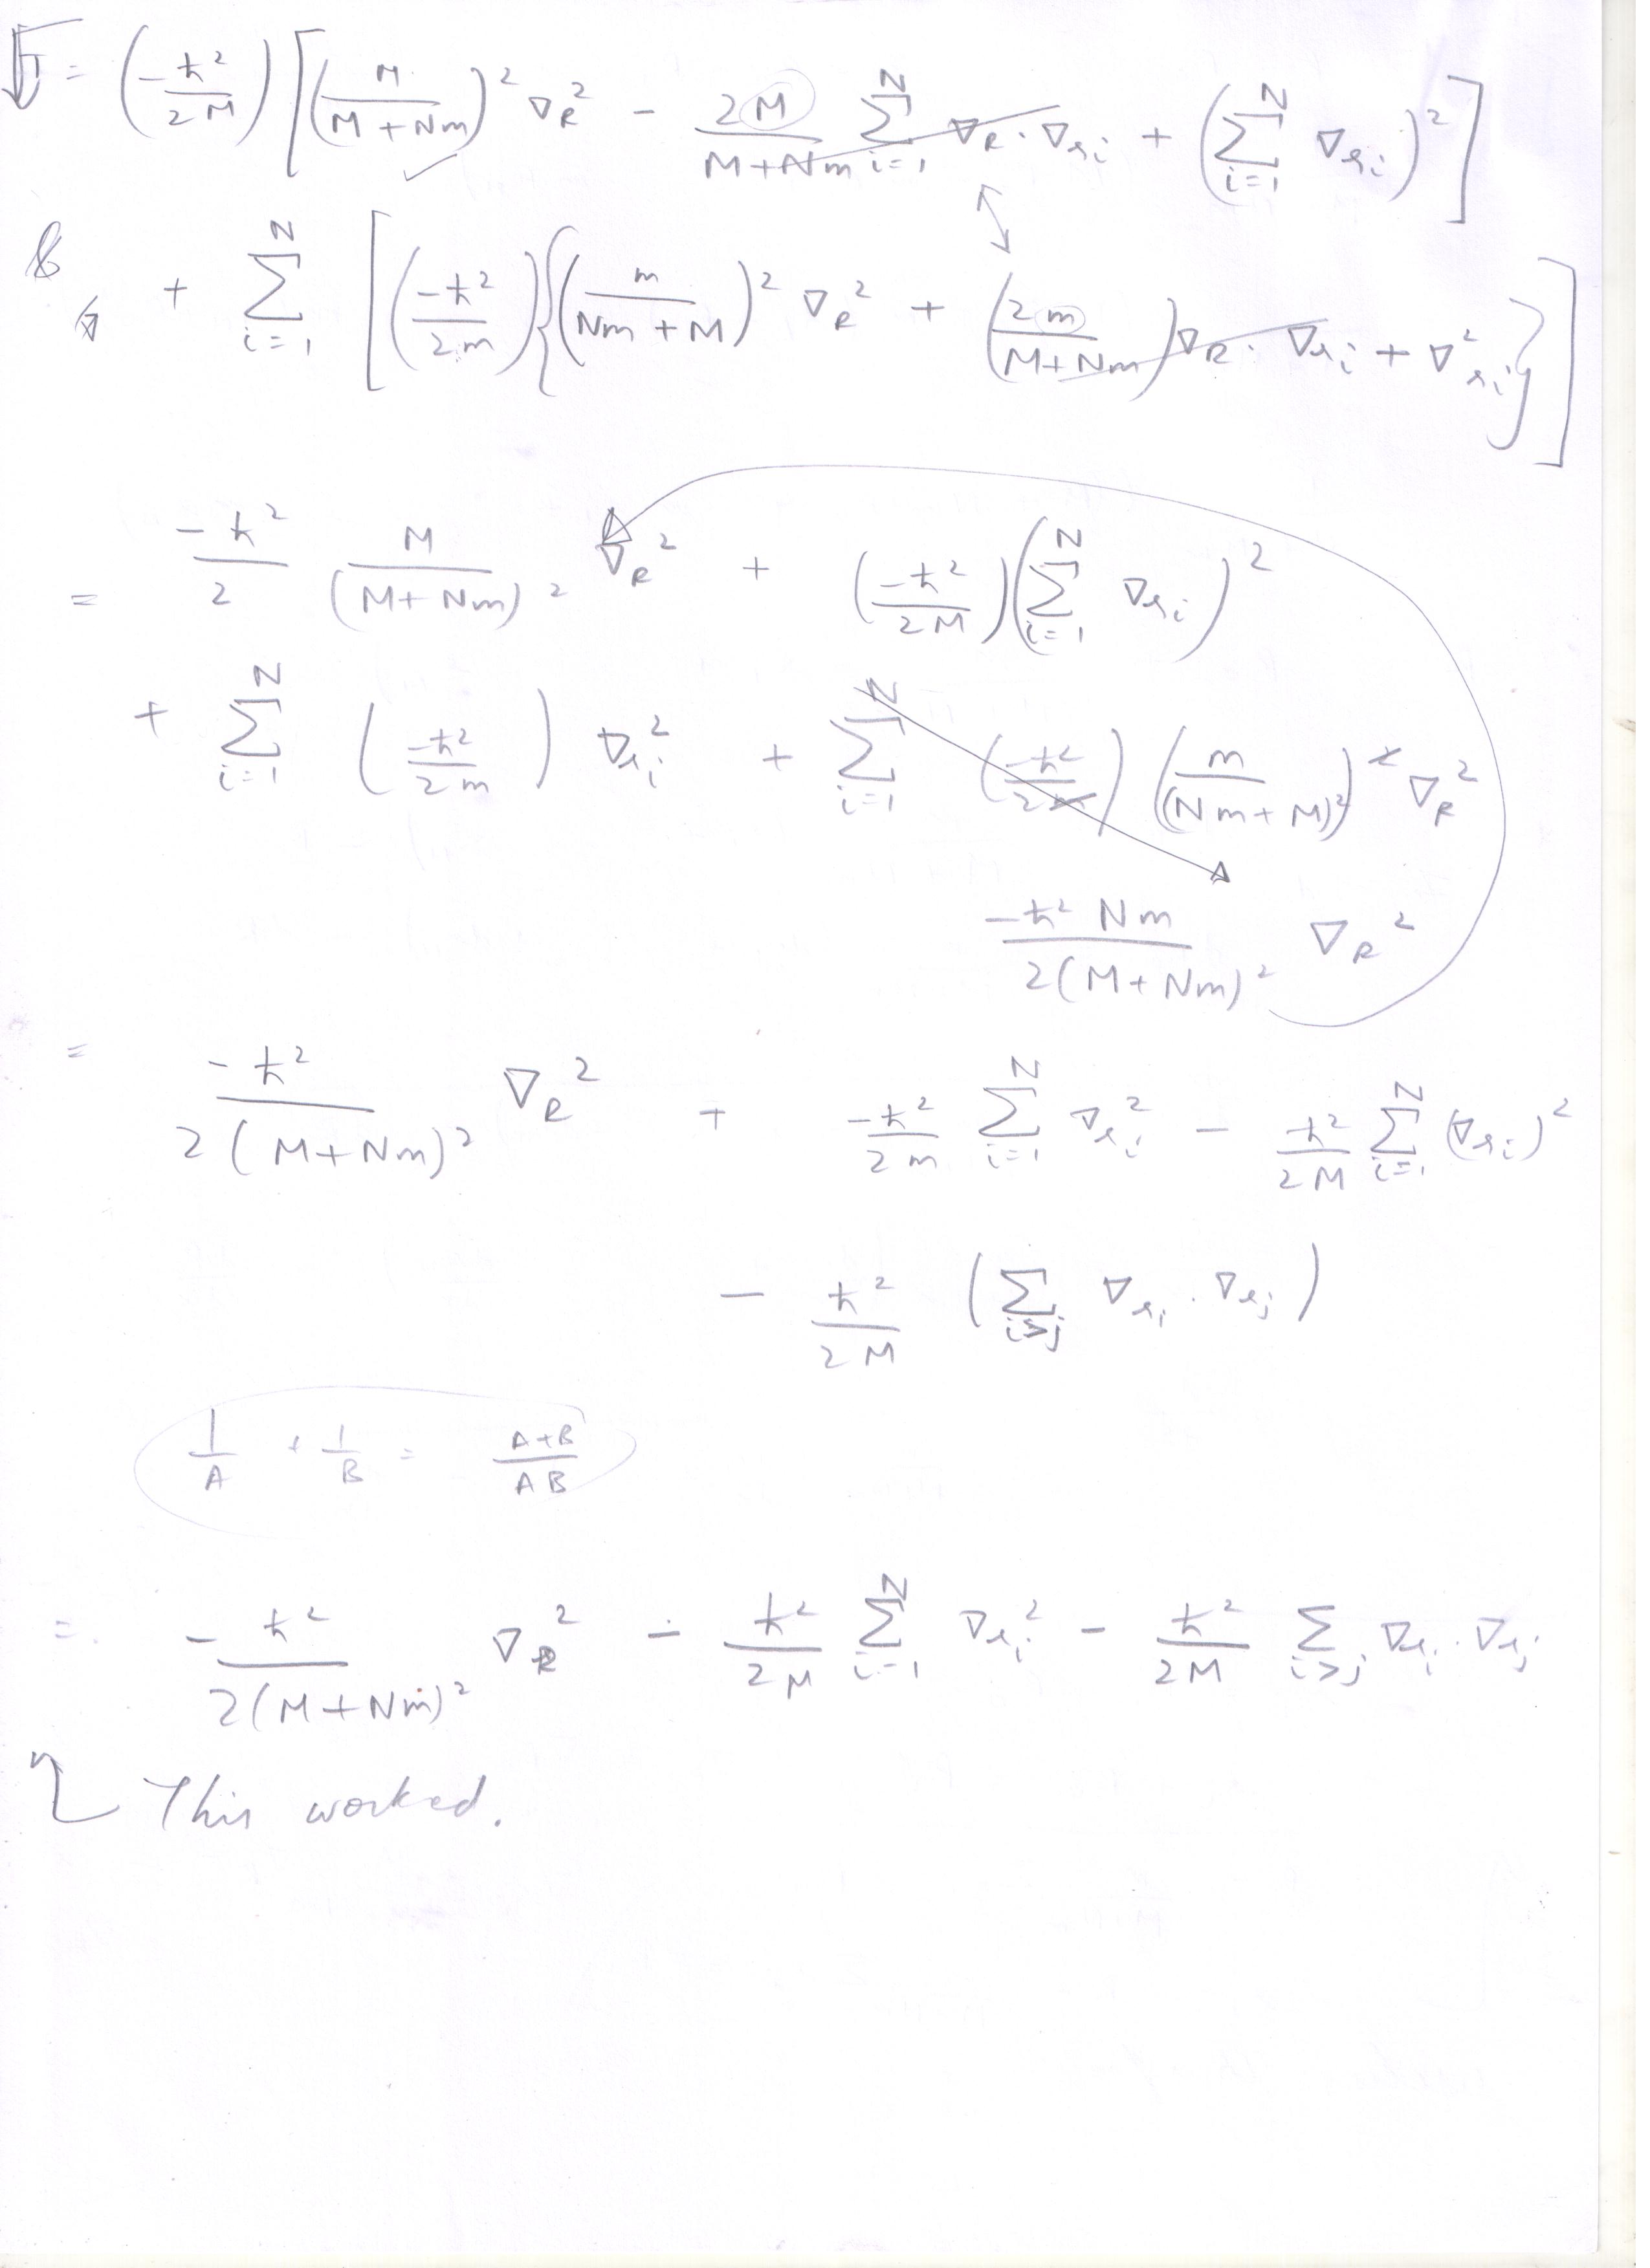 T = (-ħ²/2M) [ (M/(M+Nm))² ∇_R² - 2M/(M+Nm) Σ_{i=1}^{N} ∇_R · ∇_{r_i} + ( Σ_{i=1}^{N} ∇_{r_i} )² ]
+ Σ_{i=1}^{N} [ (-ħ²/2m) { (m/(Nm+M))² ∇_R² + (2m/(M+Nm)) ∇_R · ∇_{r_i} + ∇²_{r_i} } ]
= -ħ²/2 M/(M+Nm)² ∇_R² + (-ħ²/2M) ( Σ_{i=1}^{N} ∇_{r_i} )²
+ Σ_{i=1}^{N} (-ħ²/2m) ∇_{r_i}² + Σ_{i=1}^{N} (-ħ²/2m) (m/(Nm+M)²)² ∇_R²
-ħ² Nm/2(M+Nm)² ∇_R²
= -ħ²/2(M+Nm)² ∇_R² + -ħ²/2m Σ_{i=1}^{N} ∇_{r_i}² - ħ²/2M Σ_{i=1}^{N} (∇_{r_i})²
- ħ²/2M ( Σ_{i>j} ∇_{r_i} · ∇_{r_j} )
1/A + 1/B = A+B/AB
= -ħ²/2(M+Nm)² ∇_R² - ħ²/2μ Σ_{i=1}^{N} ∇_{r_i}² - ħ²/2M Σ_{i>j} ∇_{r_i} · ∇_{r_j}
This worked.